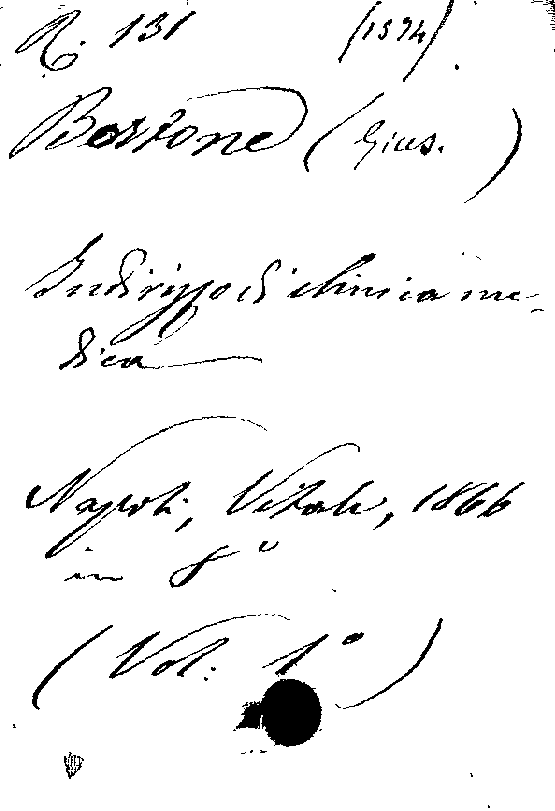 R. 131 (1594)
Borrone (Gius.)
Indirizzo di clinica me-
dica
Napoli, Vitale, 1866
in 8°
(Vol: 1°)